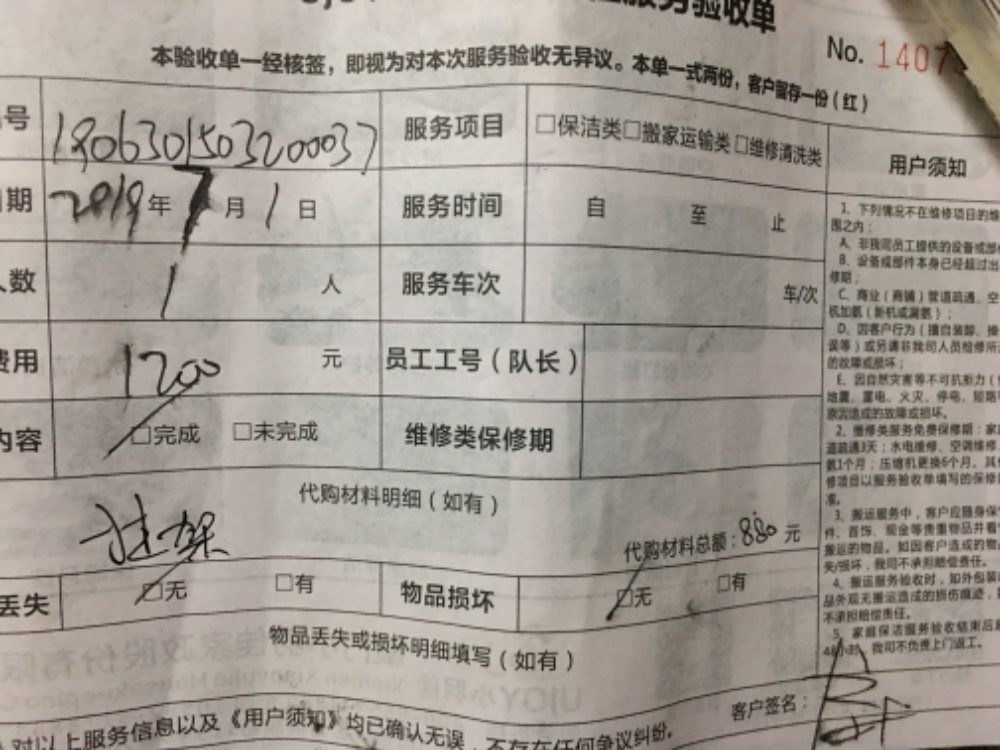 服务验收单
No. 1407
本验收单一经核签，即视为对本次服务验收无异议。本单一式两份，客户留存一份（红）
号 1806301503200037 服务项目 □保洁类□搬家运输类□维修清洗类 用户须知
期 2019年7月1日 服务时间 自 至 止
人数 1 人 服务车次 车/次
费用 1200 元 员工工号（队长）
内容 □完成 □未完成 维修类保修期
代购材料明细（如有）
挂架 代购材料总额：880元
丢失 □无 □有 物品损坏 □无 □有
物品丢失或损坏明细填写（如有）
客户签名：
对以上服务信息以及《用户须知》均已确认无误，不存在任何争议纠纷。
1、下列情况不在维修项目的维
围之内：
A、非我司员工提供的设备或部件
B、设备或部件本身已经超过出
修期；
C、商业（商铺）管道疏通、空
机加氨（新机或漏氨）；
D、因客户行为（擅自装卸、操
误等）或另请非我司人员检修所
的故障或损坏；
E、因自然灾害等不可抗拒力（
地震、雷电、火灾、停电、短路
原因造成的故障或损坏。
2、维修类服务免费保修期：家
道疏通3天；水电维修、空调维修、
氨1个月；压缩机更换6个月。其
修项目以服务验收单填写的保修
准。
3、搬运服务中，客户应随身保
件、首饰、现金等贵重物品并看
搬运的物品。如因客户造成的物
失/损坏，我司不承担赔偿责任。
4、搬运服务验收时，如外包装
品外观无搬运造成的损伤痕迹，
不承担赔偿责任。
5、家庭保洁服务验收结束后
我司不负责上门返工。